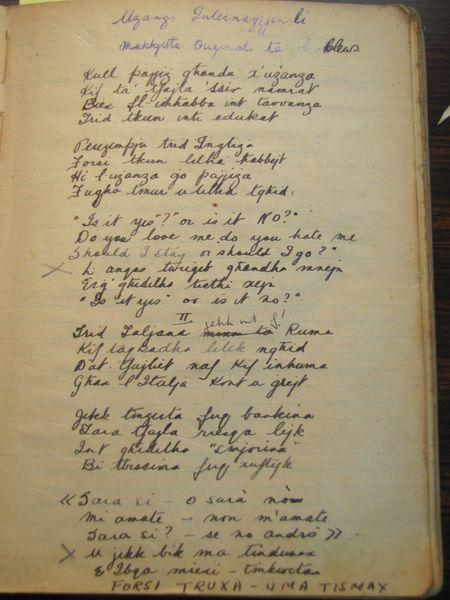 Użanzi Internazzjonali
Makkjetta Originali ta Blews
Kull pajjiz ghandu x'uzanza
Kif ta' tfajla 'ssir namrat
Biex fl imhabba int tavvanza
Irid ikun inti edukat
Perezempju trid Ingliza
Forsi tkun lilha habbejt
Hi l uzanza go pajjiza
Fugha tmur u lilha tghid:
"Is it yes"?" or is it NO?"
Do you love me do you hate me
Should I stay or should I go?"
Li angas twieget ghandha mnejn
Erg' ghidilha tieħi xejn
"Is it yes" or is it no?"
II
Irid Taljana jekk int f' Ruma
Kif taghadha lilek nghid
Dat tfajliet naf kif inhuma
Ghax l Italja kont u grejt
Jekk tingista fug bankina
Tara tfajla riesqa lejk
Int ghidilha "Sinjorina"
Bi tbissima fug xuftejk
«Sara si - o sarà nò
mi amate - non m'amate
Sara si? - se no andrò»
U jekk bik ma tindunax
Ibqa miexi - tinkwetax
FORSI TRUXA - U MA TISMAX